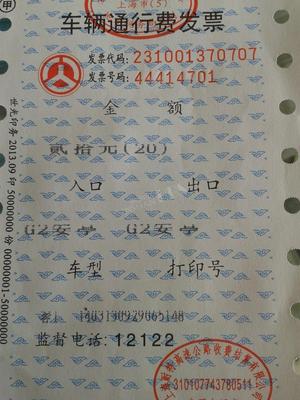 上海市(5)
车辆通行费发票
发票代码:231001370707
发票号码:44414701
金 额
贰拾元(20)
入口 出口
G2安亭 G2安亭
车型 打印号
客1 1403190929065148
监督电话:12122
310107743780511
世光印务 2013.09 印 50000000 份 00000001-50000000
甲